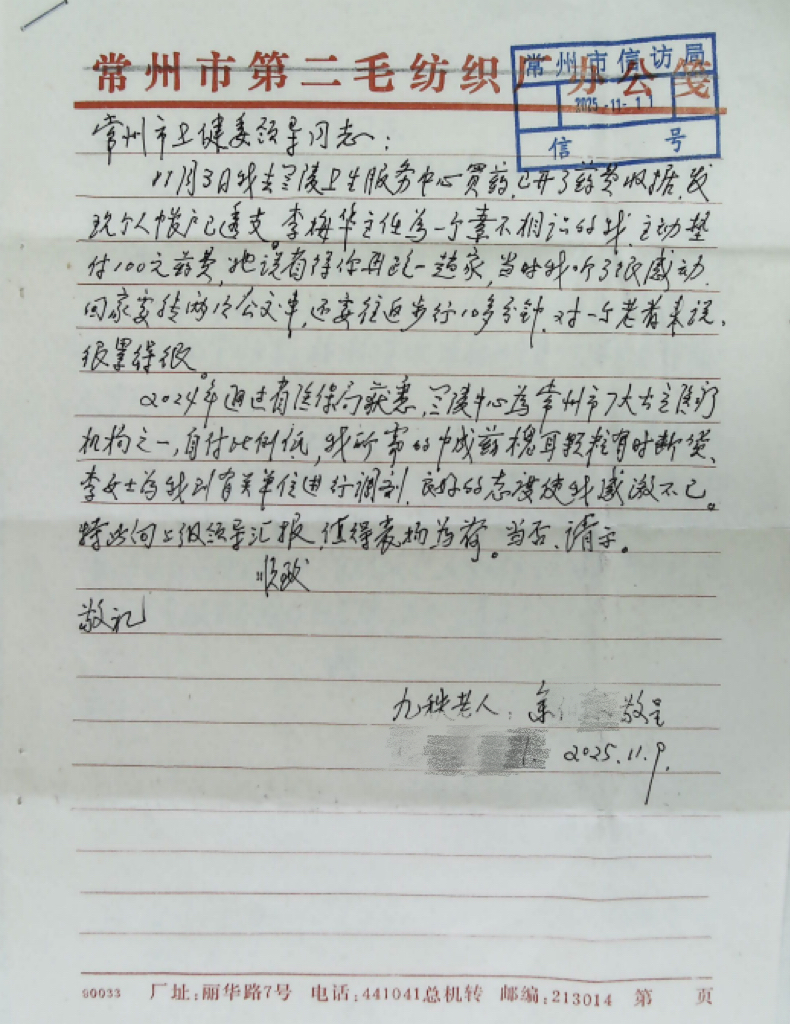 常州市第二毛纺织厂办公笺
常州市信访局
2025-11-1
信 号
常州市卫健委领导同志:
11月3日我去兰陵卫生服务中心買药,已开了药费收据,发
现个人帐户已透支。李梅华主任為一个素不相识的我,主动垫
付100元药费,她说省得你再跑一趟家,当时我听了很感动.
回家要转两次公交車,还要往返步行10多分钟.对一个老者来说,
很累得很。
2024年通过省医保局获悉,兰陵中心為常州市7大公立医疗
机构之一,自付比例低,我所需的中成药槐耳颗粒有时断货、
李女士為我到有关单位进行调剂,良好的态度使我感激不已。
特此向上级领导汇报,值得表扬为荷。当否、请示。
此致
敬礼
九秩老人: 余 敬呈
2025.11.9.
90033 厂址:丽华路7号 电话:441041总机转 邮编:213014 第 页